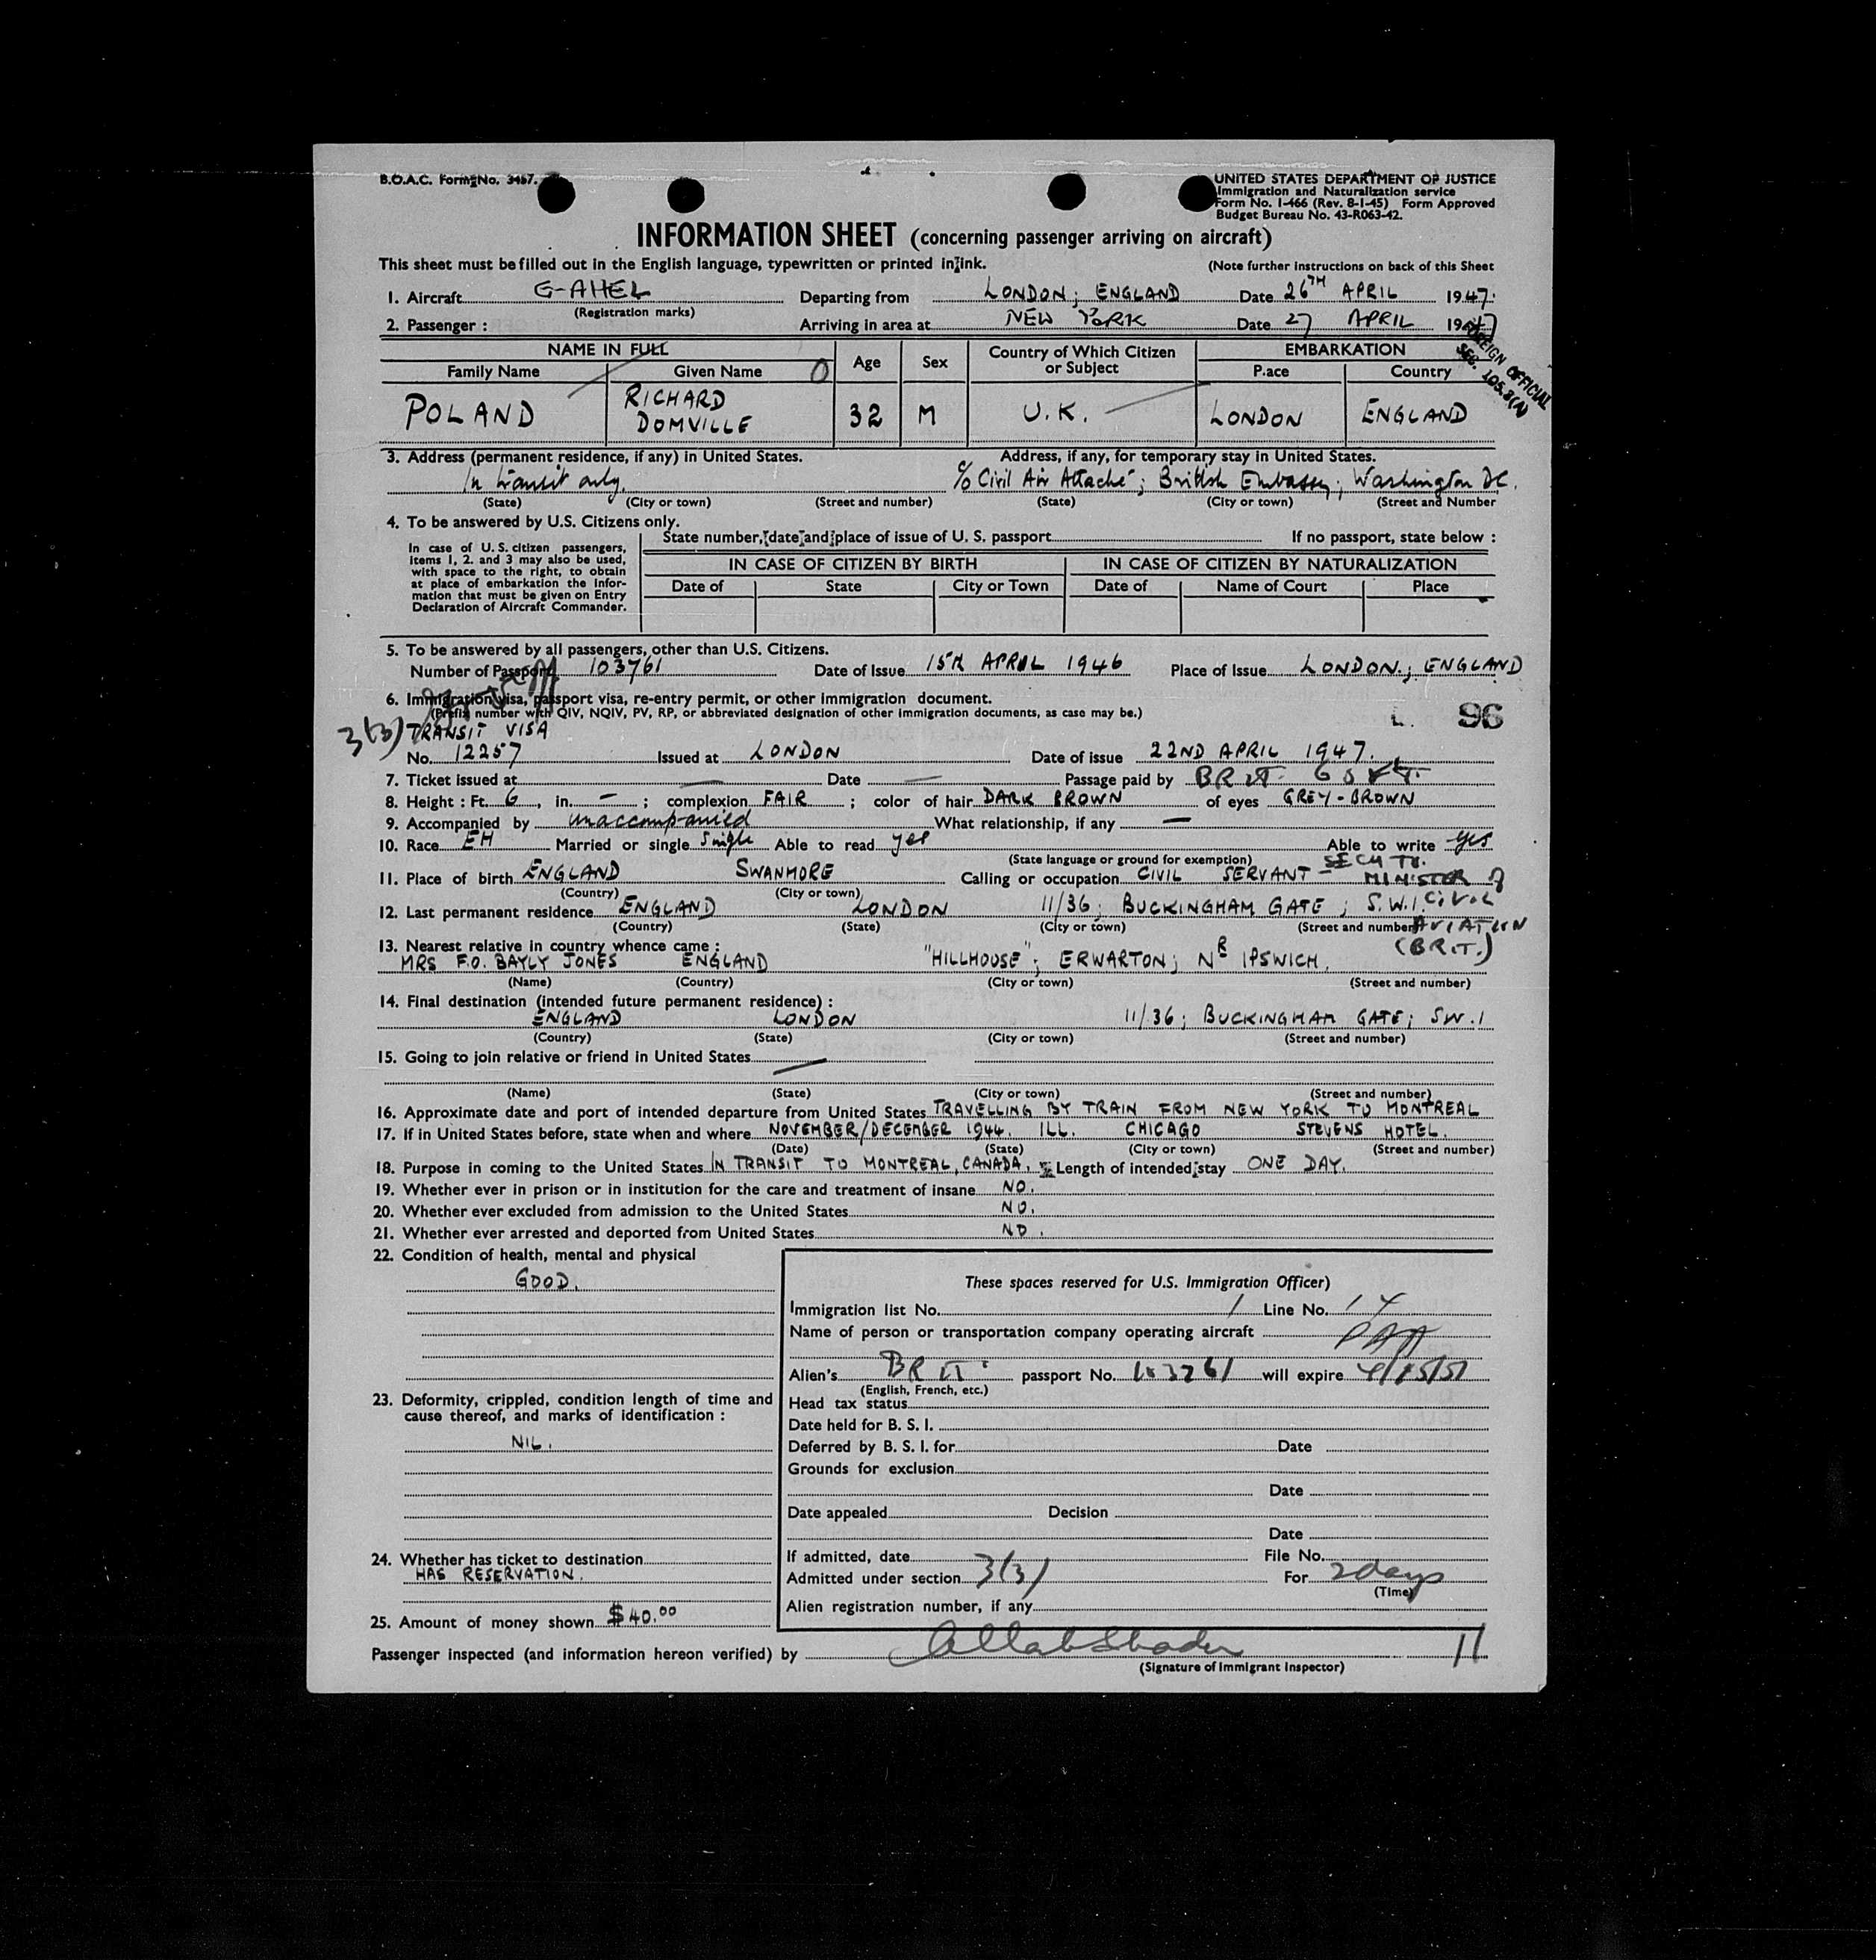 B.O.A.C. Form No. 3467.
UNITED STATES DEPARTMENT OF JUSTICE
Immigration and Naturalization service
Form No. I-466 (Rev. 8-1-45) Form Approved
Budget Bureau No. 43-R063-42.
INFORMATION SHEET (concerning passenger arriving on aircraft)
This sheet must be filled out in the English language, typewritten or printed in ink. (Note further instructions on back of this Sheet
1. Aircraft G-AHEL Departing from LONDON; ENGLAND Date 26TH APRIL 1947.
(Registration marks)
2. Passenger : Arriving in area at NEW YORK Date 27 APRIL 1947
FOREIGN OFFICIAL
SEC. 105.3(A)
NAME IN FULL Age Sex Country of Which Citizen or Subject EMBARKATION
Family Name Given Name O P.ace Country
POLAND RICHARD DOMVILLE 32 M U.K. LONDON ENGLAND
3. Address (permanent residence, if any) in United States. Address, if any, for temporary stay in United States.
In transit only. c/o Civil Air Attaché; British Embassy; Washington DC.
(State) (City or town) (Street and number) (State) (City or town) (Street and Number
4. To be answered by U.S. Citizens only.
State number, date and place of issue of U. S. passport If no passport, state below :
In case of U.S. citizen passengers,
items 1, 2. and 3 may also be used,
with space to the right, to obtain
at place of embarkation the infor-
mation that must be given on Entry
Declaration of Aircraft Commander.
IN CASE OF CITIZEN BY BIRTH IN CASE OF CITIZEN BY NATURALIZATION
Date of State City or Town Date of Name of Court Place
5. To be answered by all passengers, other than U.S. Citizens.
Number of Passport 103761 Date of Issue 15th APRIL 1946 Place of Issue LONDON; ENGLAND
6. Immigration visa, passport visa, re-entry permit, or other immigration document.
(Prefix number with QIV, NQIV, PV, RP, or abbreviated designation of other immigration documents, as case may be.) 96
3(3) TRANSIT VISA
No. 12257 Issued at LONDON Date of issue 22ND APRIL 1947.
7. Ticket issued at — Date — Passage paid by BRIT. GOVT.
8. Height : Ft. 6, in. — ; complexion FAIR ; color of hair DARK BROWN of eyes GREY-BROWN
9. Accompanied by unaccompanied What relationship, if any —
10. Race EH Married or single Single Able to read yes Able to write yes
(State language or ground for exemption)
11. Place of birth ENGLAND SWANMORE Calling or occupation CIVIL SERVANT - SECY TO. MINISTER of CIVIL AVIATION (BRIT.)
(Country) (City or town)
12. Last permanent residence ENGLAND LONDON 11/36; BUCKINGHAM GATE; S.W.1.
(Country) (State) (City or town) (Street and number)
13. Nearest relative in country whence came :
MRS F.O. BAYLY JONES ENGLAND "HILLHOUSE"; ERWARTON; NR IPSWICH.
(Name) (Country) (City or town) (Street and number)
14. Final destination (intended future permanent residence) :
ENGLAND LONDON 11/36; BUCKINGHAM GATE; SW.1
(Country) (State) (City or town) (Street and number)
15. Going to join relative or friend in United States —
(Name) (State) (City or town) (Street and number)
16. Approximate date and port of intended departure from United States TRAVELLING BY TRAIN FROM NEW YORK TO MONTREAL
17. If in United States before, state when and where NOVEMBER/DECEMBER 1944. ILL. CHICAGO STEVENS HOTEL.
(Date) (State) (City or town) (Street and number)
18. Purpose in coming to the United States IN TRANSIT TO MONTREAL, CANADA. Length of intended stay ONE DAY.
19. Whether ever in prison or in institution for the care and treatment of insane NO.
20. Whether ever excluded from admission to the United States NO.
21. Whether ever arrested and deported from United States NO.
22. Condition of health, mental and physical
GOOD.
23. Deformity, crippled, condition length of time and
cause thereof, and marks of identification :
NIL.
24. Whether has ticket to destination
HAS RESERVATION.
25. Amount of money shown $40.00
These spaces reserved for U.S. Immigration Officer)
Immigration list No. 1 Line No. 14
Name of person or transportation company operating aircraft
Alien's BRIT. passport No. 103761 will expire 4/15/51
(English, French, etc.)
Head tax status
Date held for B. S. I.
Deferred by B. S. I. for Date
Grounds for exclusion
Date
Date appealed Decision
Date
If admitted, date File No.
Admitted under section 3(3) For 2 days
(Time)
Alien registration number, if any
Passenger inspected (and information hereon verified) by 11
(Signature of Immigrant Inspector)